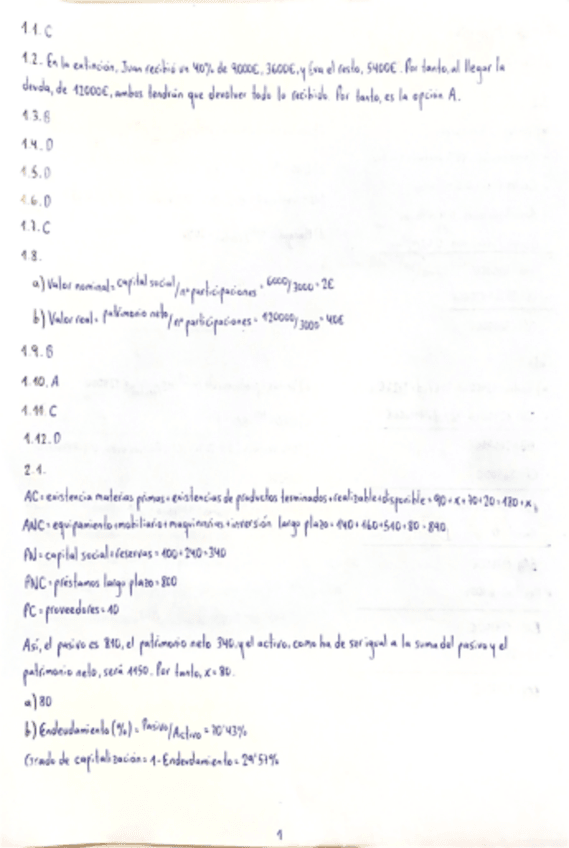 1.1. C
1.2. En la extinción, Juan recibió un 40% de 9000€, 3600€, y Eva el resto, 5400€. Por tanto, al llegar la
deuda, de 12000€, ambos tendrán que devolver todo lo recibido. Por tanto, es la opción A.
1.3. B
1.4. D
1.5. D
1.6. D
1.7. C
1.8.
a) Valor nominal = capital social/nº participaciones = 6000/3000 = 2€
b) Valor real = patrimonio neto/nº participaciones = 120000/3000 = 40€
1.9. B
1.10. A
1.11. C
1.12. D
2.1.
AC = existencia materias primas + existencias de productos terminados + realizable + disponible = 90 + x + 70 + 20 = 180 + x,
ANC = equipamiento + mobiliario + maquinarias + inversión largo plazo = 140 + 160 + 510 + 80 = 890
PN = capital social + reservas = 100 + 240 = 340
PNC = préstamos largo plazo = 800
PC = proveedores = 10
Así, el pasivo es 810, el patrimonio neto 340, y el activo, como ha de ser igual a la suma del pasivo y el
patrimonio neto, será 1150. Por tanto, x = 80.
a) 80
b) Endeudamiento (%) = Pasivo/Activo = 70'43%
Grado de capitalización = 1 - Endeudamiento = 29'57%
1